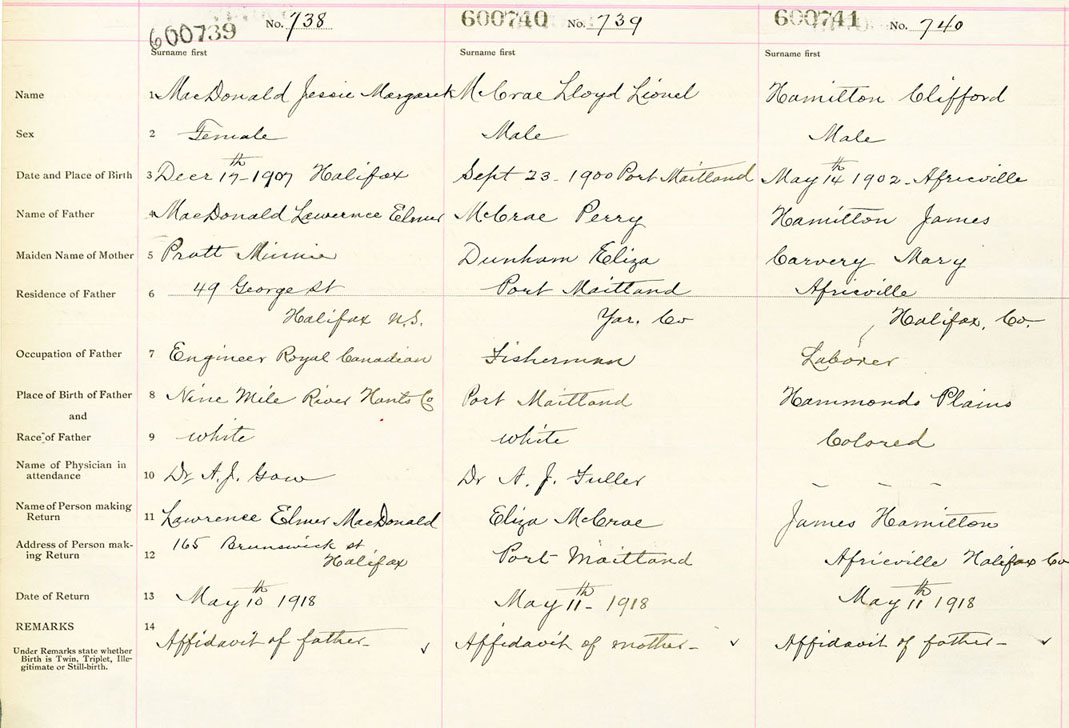 600739 No. 738 600740 No. 739 600741 No. 740
Surname first Surname first Surname first
Name 1 MacDonald Jessie Margaret McCrae Lloyd Lionel Hamilton Clifford
Sex 2 Female Male Male
Date and Place of Birth 3 Decr 17th 1907 Halifax Sept 23 - 1900 Port Maitland May 14th 1902 - Africville
Name of Father 4 MacDonald Lawernce Elmer McCrae Perry Hamilton James
Maiden Name of Mother 5 Pratt Minnie Dunham Eliza Carvery Mary
Residence of Father 6 49 George St Port Maitland Africville
Halifax N.S. Yar. Co Halifax, Co.
Occupation of Father 7 Engineer Royal Canadian Fisherman Laborer
Place of Birth of Father 8 Nine Mile River Hants Co Port Maitland Hammonds Plains
and
Race of Father 9 white white Colored
Name of Physician in
attendance 10 Dr A.J. Gow Dr A. J. Fuller - - -
Name of Person making
Return 11 Lawrence Elmer MacDonald Eliza McCrae James Hamilton
Address of Person mak-
ing Return 12 165 Brunswick st Port Maitland Africville Halifax Co
Halifax
Date of Return 13 May 10th 1918 May 11th - 1918 May 11th 1918
REMARKS 14 Affidavit of father - Affidavit of mother - Affidavit of father -
Under Remarks state whether
Birth is Twin, Triplet, Ille-
gitimate or Still-birth.